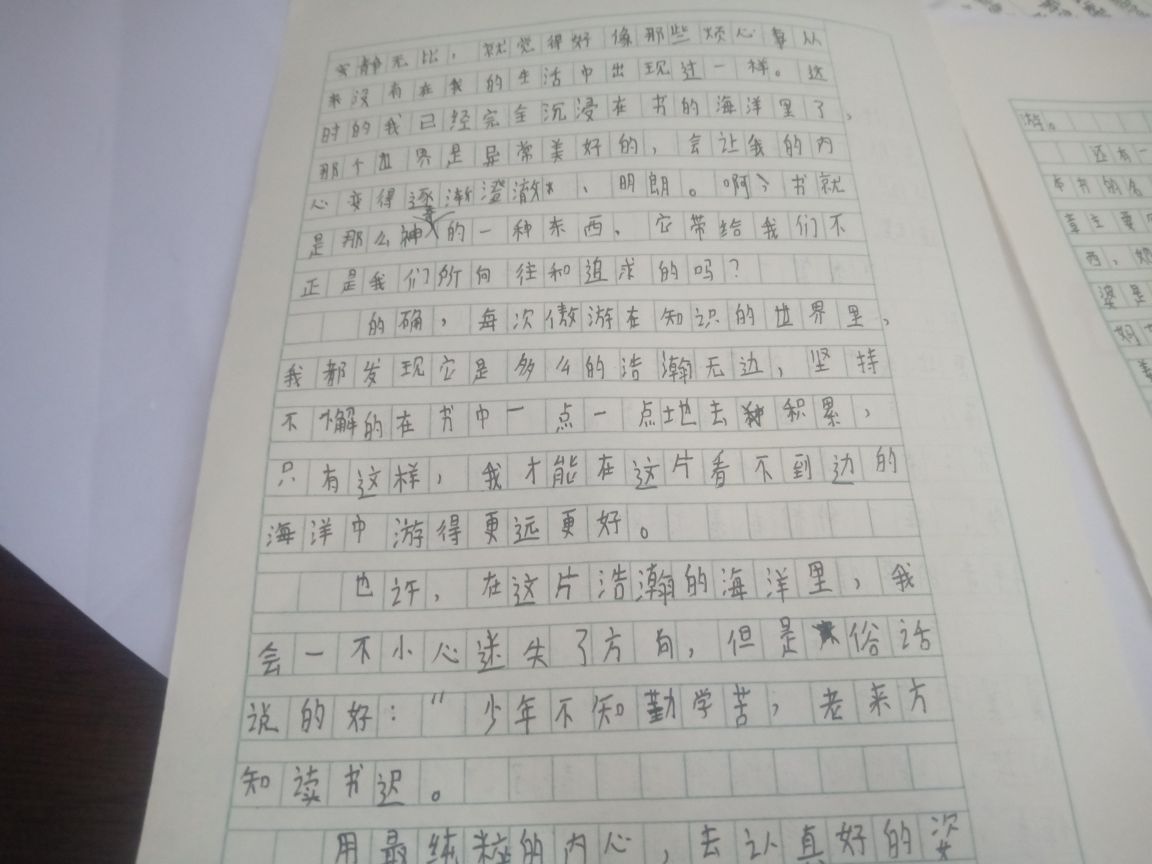 安静无比，就觉得好像那些烦心事从
来没有在我的生活中出现过一样。这
时的我已经完全沉浸在书的海洋里了，
那个世界是异常美好的，会让我的内
心变得逐渐澄澈、明朗。啊，书就
是那么神奇的一种东西，它带给我们不
正是我们所向往和追求的吗？
的确，每次傲游在知识的世界里，
我都发现它是多么的浩瀚无边，坚持
不懈的在书中一点一点地去积累，
只有这样，我才能在这片看不到边的
海洋中游得更远更好。
也许，在这片浩瀚的海洋里，我
会一不小心迷失了方向，但是俗话
说的好：“少年不知勤学苦，老来方
知读书迟。
用最纯粹的内心，去认真好的姿
游。
还有一
本书的名
章主要
西，
婆是